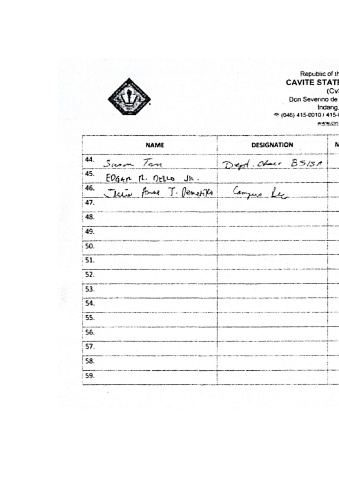 Republic of th
CAVITE STATE
(Cv
Don Severino de
Indang,
(046) 415-0010 / 415-
www.cv
NAME DESIGNATION M
44. Susan Tan Dept. Chair BSISA
45. EDGAR R. DELLO JR.
46. T. Campus
47.
48.
49.
50.
51.
52.
53.
54.
55.
56.
57.
58.
59.